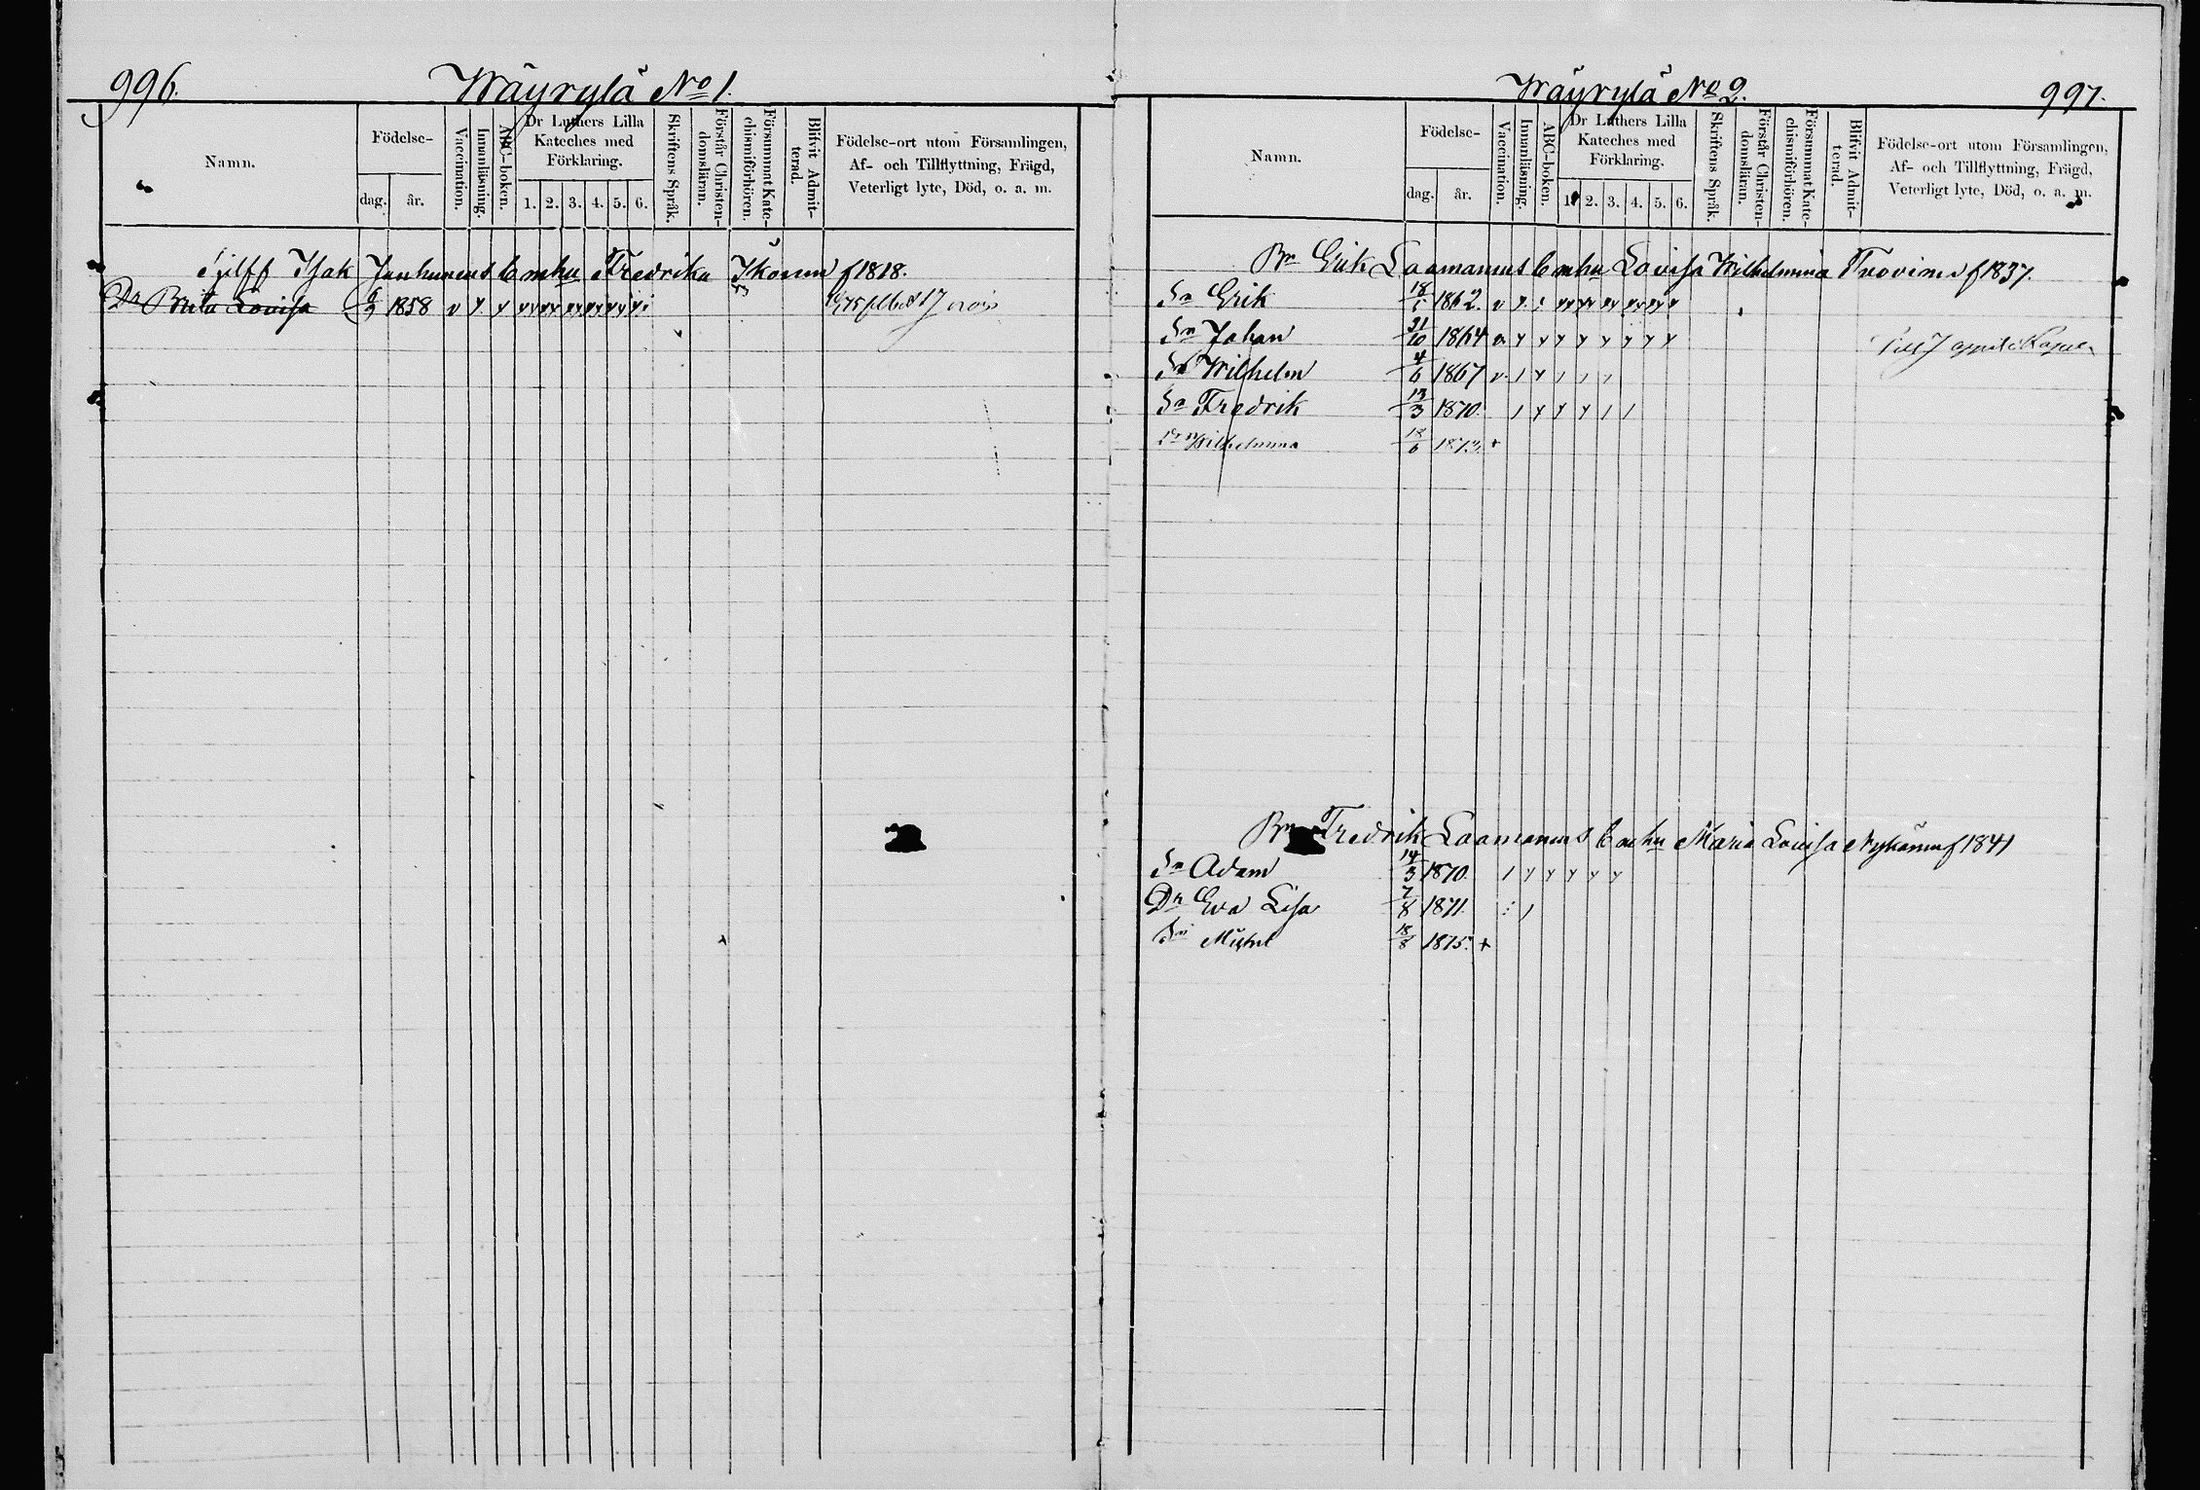 996.
Wäyrylä No 1.
Namn.
Födelse-
dag.
år.
Vaccination.
Innanläsning.
ABC-boken.
Dr Luthers Lilla
Kateches med
Förklaring.
1. 2. 3. 4. 5. 6.
Skriftens Språk.
Förstår Christen-
domsläran.
Försummat Kate-
chismiförhören.
Blifvit Admit-
terad.
Födelse-ort utom Församlingen,
Af- och Tillflyttning, Frägd,
Veterligt lyte, Död, o. a. m.
Isak Fredrika Ikonen f 1818.
Dr Brita Lovisa 1858
Wäyrylä No 2.
997.
Namn.
Födelse-
dag.
år.
Vaccination.
Innanläsning.
ABC-boken.
Dr Luthers Lilla
Kateches med
Förklaring.
1. 2. 3. 4. 5. 6.
Skriftens Språk.
Förstår Christen-
domsläran.
Försummat Kate-
chismiförhören.
Blifvit Admit-
terad.
Födelse-ort utom Församlingen,
Af- och Tillflyttning, Frägd,
Veterligt lyte, Död, o. a. m.
Bn Erik Laamanens enka Lovisa Wilhelmina f 1837.
Sn Erik 1862.
Sn Johan 31/10 1864
Sn Wilhelm 4/6 1867
Sn Fredrik 13/3 1870.
Dr Wilhelmina 18/6 1873. +
Bn Fredrik Laamanens enka Maria Lovisa Nykänen f 1841
Sn Adam 14/3 1870.
Dr Eva Lisa 7/8 1871.
Sn Michel 18/8 1875. +